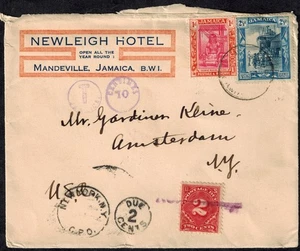 NEWLEIGH HOTEL
OPEN ALL THE
YEAR ROUND
MANDEVILLE, JAMAICA, B.W.I.
JAMAICA
JAMAICA
10
Mr. Gardiner Kline
Amsterdam
N.Y.
NEW YORK, N.Y.
G.P.O.
DUE
2
CENTS
2